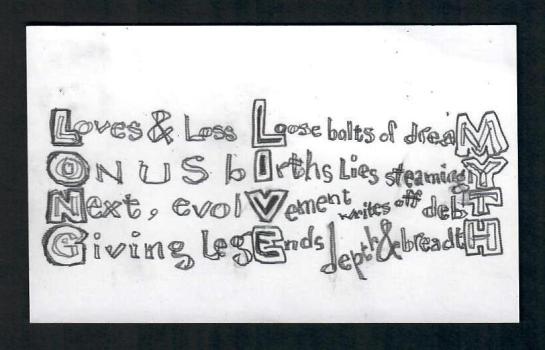 Loves & Loss Loose bolts of dreaM
ONUS bIrths Lies steamingY
Next, evolVement writes off debT
Giving LegEnds depth & breadtH